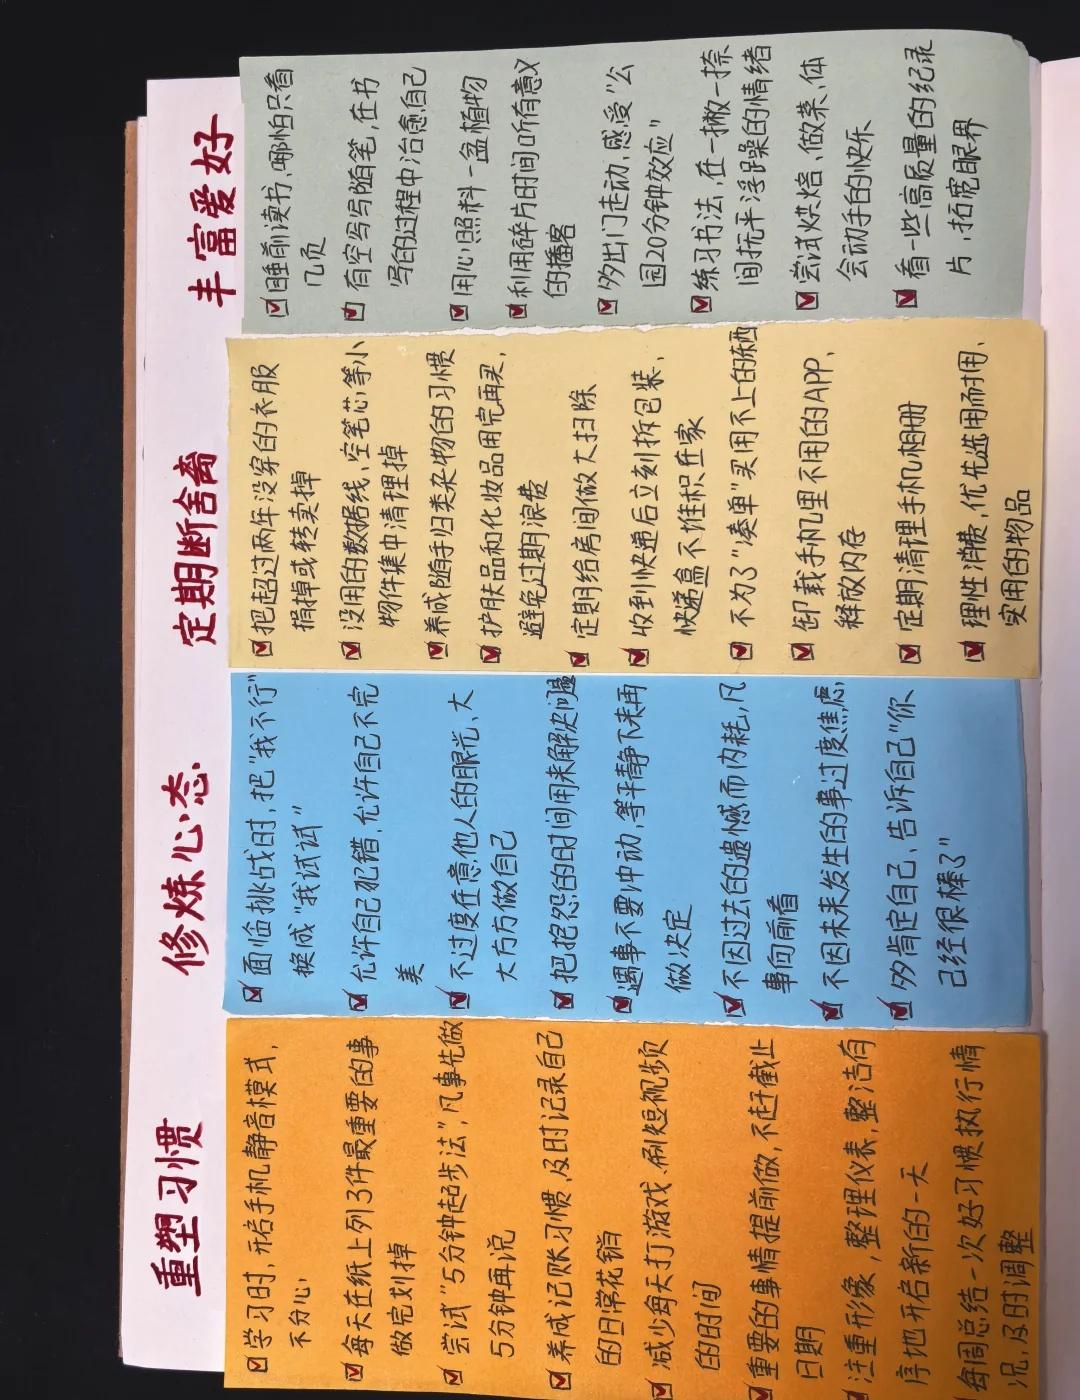 重塑习惯
学习时,开启手机静音模式,
不分心
每天在纸上列3件最重要的事
做完划掉
尝试"5分钟起步法",凡事先做
5分钟再说
养成记账习惯,及时记录自己
的日常花销
减少每天打游戏、刷短视频
的时间
重要的事情提前做,不赶截止
日期
注重形象,整理仪表,整洁有
序地开启新的一天
每周总结一次好习惯执行情
况,及时调整
修炼心态
面临挑战时,把"我不行"
换成"我试试"
允许自己犯错,允许自己不完
美
不过度在意他人的眼光、大
大方方做自己
把抱怨的时间用来解决问题
遇事不要冲动,等平静下来再
做决定
不因过去的遗憾而内耗,凡
事向前看
不因未来发生的事过度焦虑,
多肯定自己、告诉自己"你
已经很棒了"
定期断舍离
把超过两年没穿的衣服
捐掉或转卖掉
没用的数据线、空笔芯等小
物件集中清理掉
养成随手归类杂物的习惯
护肤品和化妆品用完再买,
避免过期浪费
定期给房间做大扫除
收到快递后立刻拆包装、
快递盒不堆积在家
不为了"凑单"买用不上的东西
卸载手机里不用的APP、
释放内存
定期清理手机相册
理性消费,优先选用耐用、
实用的物品
丰富爱好
睡前读书,哪怕只看
几页
有空写写随笔,在书
写的过程中治愈自己
用心照料一盆植物
利用碎片时间听有意义
的播客
多出门走动,感受"公
园20分钟效应"
练习书法,在一撇一捺
间抚平浮躁的情绪
尝试烘焙、做菜、体
会动手的快乐
看一些高质量的纪录
片,拓宽眼界